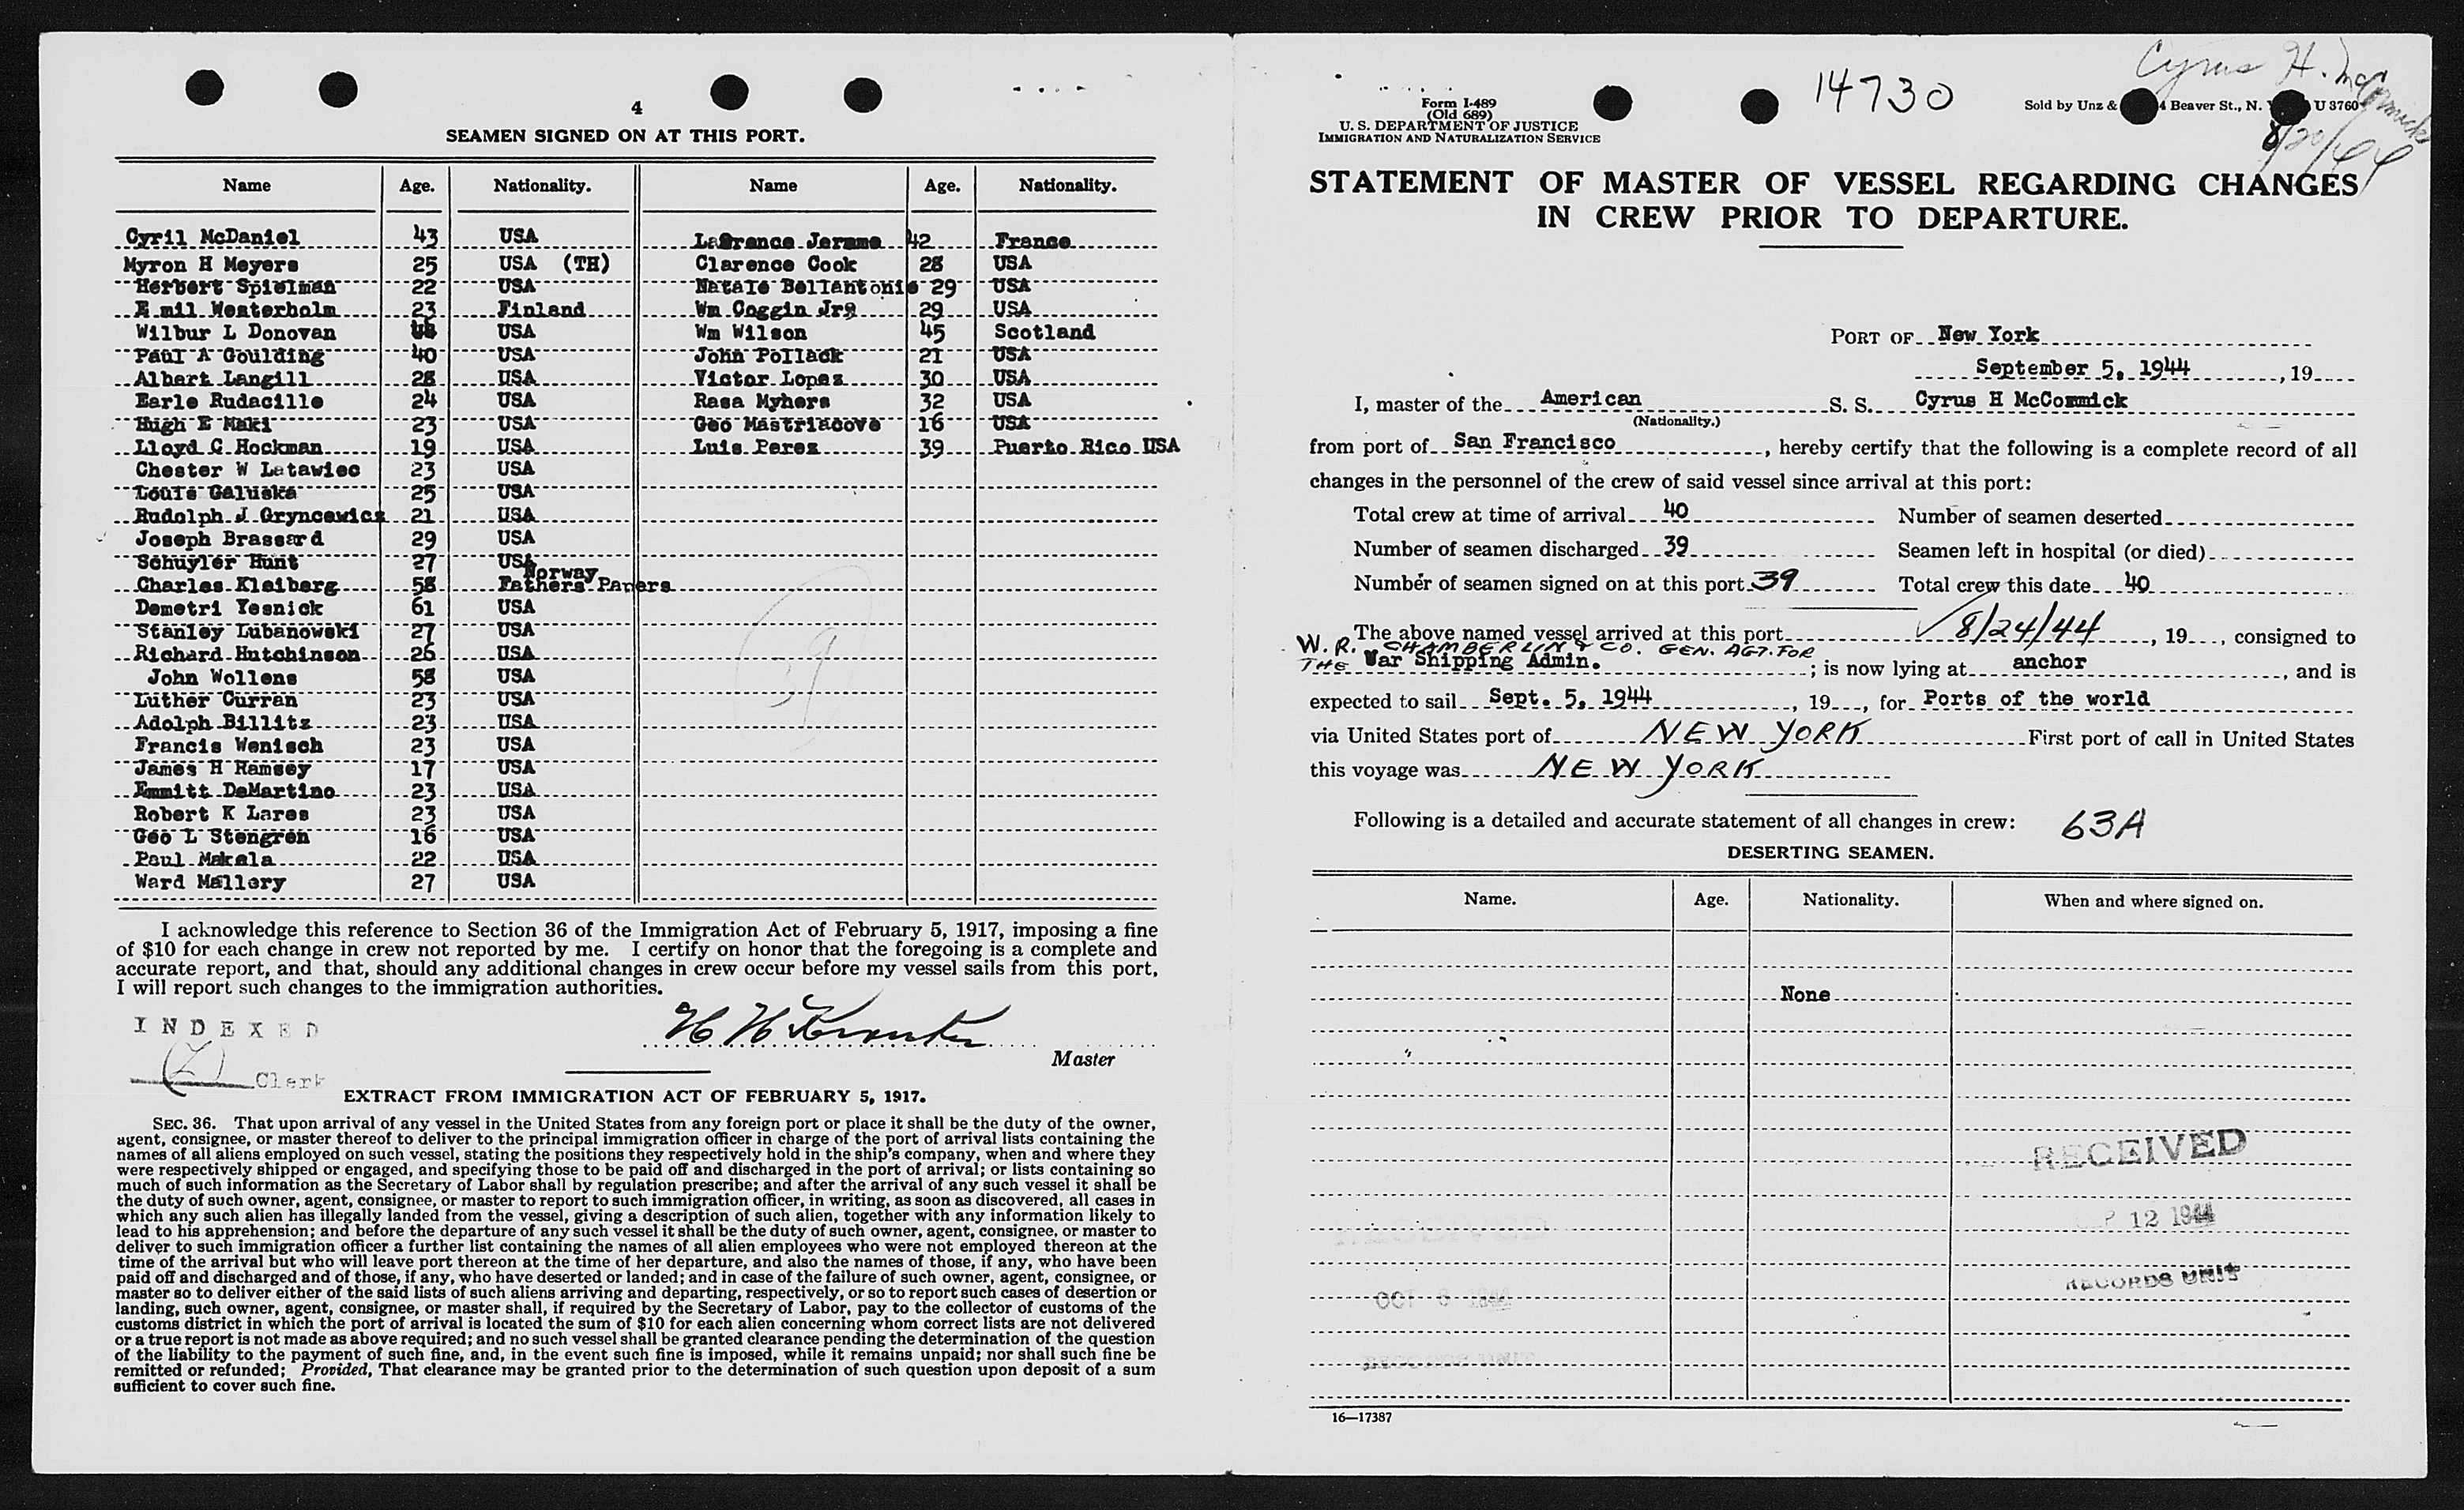 4
SEAMEN SIGNED ON AT THIS PORT.
Name Age. Nationality. Name Age. Nationality.
Cyril McDaniel 43 USA Jerome 42 France
Myron H Meyers 25 USA (TH) Clarence Cook 28 USA
Herbert Spielman 22 USA Natale Bellantonio 29 USA
Emil Westerholm 23 Finland Wm Coggin Jr 29 USA
Wilbur L Donovan USA Wm Wilson 45 Scotland
Paul A Goulding 40 USA John Pollack 21 USA
Albert Langill 28 USA Victor Lopez 30 USA
Earle Rudacille 24 USA Rasa Myhers 32 USA
Hugh E Maki 23 USA Geo Mastriacove 16 USA
Lloyd C Hockman 19 USA Luis Perez 39 Puerto Rico USA
Chester W Latawiec 23 USA
Louis Galuska 25 USA
Rudolph J Gryncewicz 21 USA
Joseph Brassard 29 USA
Schuyler Hunt 27 USA
Norway
Charles Kleiberg 58 Fathers Papers
Demetri Yesnick 61 USA
Stanley Lubanowski 27 USA
Richard Hutchinson 26 USA
John Wollens 58 USA
Luther Curran 23 USA
Adolph Billitz 23 USA
Francis Wenisch 23 USA
James H Ramsey 17 USA
Emmitt DeMartino 23 USA
Robert K Lares 23 USA
Geo L Stengren 16 USA
Paul Makela 22 USA
Ward Mallery 27 USA
39
I acknowledge this reference to Section 36 of the Immigration Act of February 5, 1917, imposing a fine
of $10 for each change in crew not reported by me. I certify on honor that the foregoing is a complete and
accurate report, and that, should any additional changes in crew occur before my vessel sails from this port,
I will report such changes to the immigration authorities.
INDEXED
H H
Master
(Z) Clerk
EXTRACT FROM IMMIGRATION ACT OF FEBRUARY 5, 1917.
SEC. 36. That upon arrival of any vessel in the United States from any foreign port or place it shall be the duty of the owner,
agent, consignee, or master thereof to deliver to the principal immigration officer in charge of the port of arrival lists containing the
names of all aliens employed on such vessel, stating the positions they respectively hold in the ship's company, when and where they
were respectively shipped or engaged, and specifying those to be paid off and discharged in the port of arrival; or lists containing so
much of such information as the Secretary of Labor shall by regulation prescribe; and after the arrival of any such vessel it shall be
the duty of such owner, agent, consignee, or master to report to such immigration officer, in writing, as soon as discovered, all cases in
which any such alien has illegally landed from the vessel, giving a description of such alien, together with any information likely to
lead to his apprehension; and before the departure of any such vessel it shall be the duty of such owner, agent, consignee, or master to
deliver to such immigration officer a further list containing the names of all alien employees who were not employed thereon at the
time of the arrival but who will leave port thereon at the time of her departure, and also the names of those, if any, who have been
paid off and discharged and of those, if any, who have deserted or landed; and in case of the failure of such owner, agent, consignee, or
master so to deliver either of the said lists of such aliens arriving and departing, respectively, or so to report such cases of desertion or
landing, such owner, agent, consignee, or master shall, if required by the Secretary of Labor, pay to the collector of customs of the
customs district in which the port of arrival is located the sum of $10 for each alien concerning whom correct lists are not delivered
or a true report is not made as above required; and no such vessel shall be granted clearance pending the determination of the question
of the liability to the payment of such fine, and, in the event such fine is imposed, while it remains unpaid; nor shall such fine be
remitted or refunded; Provided, That clearance may be granted prior to the determination of such question upon deposit of a sum
sufficient to cover such fine.
Cyrus H. McCormick
8/20/44
Form I-489
(Old 689)
U. S. DEPARTMENT OF JUSTICE
IMMIGRATION AND NATURALIZATION SERVICE
14730
Sold by Unz & 4 Beaver St., N. Y. U 3760
STATEMENT OF MASTER OF VESSEL REGARDING CHANGES
IN CREW PRIOR TO DEPARTURE.
PORT OF New York
September 5, 1944, 19
I, master of the American S. S. Cyrus H McCommick
(Nationality.)
from port of San Francisco, hereby certify that the following is a complete record of all
changes in the personnel of the crew of said vessel since arrival at this port:
Total crew at time of arrival 40 Number of seamen deserted
Number of seamen discharged 39 Seamen left in hospital (or died)
Number of seamen signed on at this port 39 Total crew this date 40
The above named vessel arrived at this port 8/24/44, 19, consigned to
W. R. CHAMBERLIN & CO. GEN. AGT. FOR
THE War Shipping Admin.; is now lying at anchor, and is
expected to sail Sept. 5, 1944, 19, for Ports of the world
via United States port of NEW YORK First port of call in United States
this voyage was NEW YORK
Following is a detailed and accurate statement of all changes in crew: 63A
DESERTING SEAMEN.
Name. Age. Nationality. When and where signed on.
None
RECEIVED
12 1944
RECORDS UNIT
OCT 1944
RECORDS UNIT
16—17387